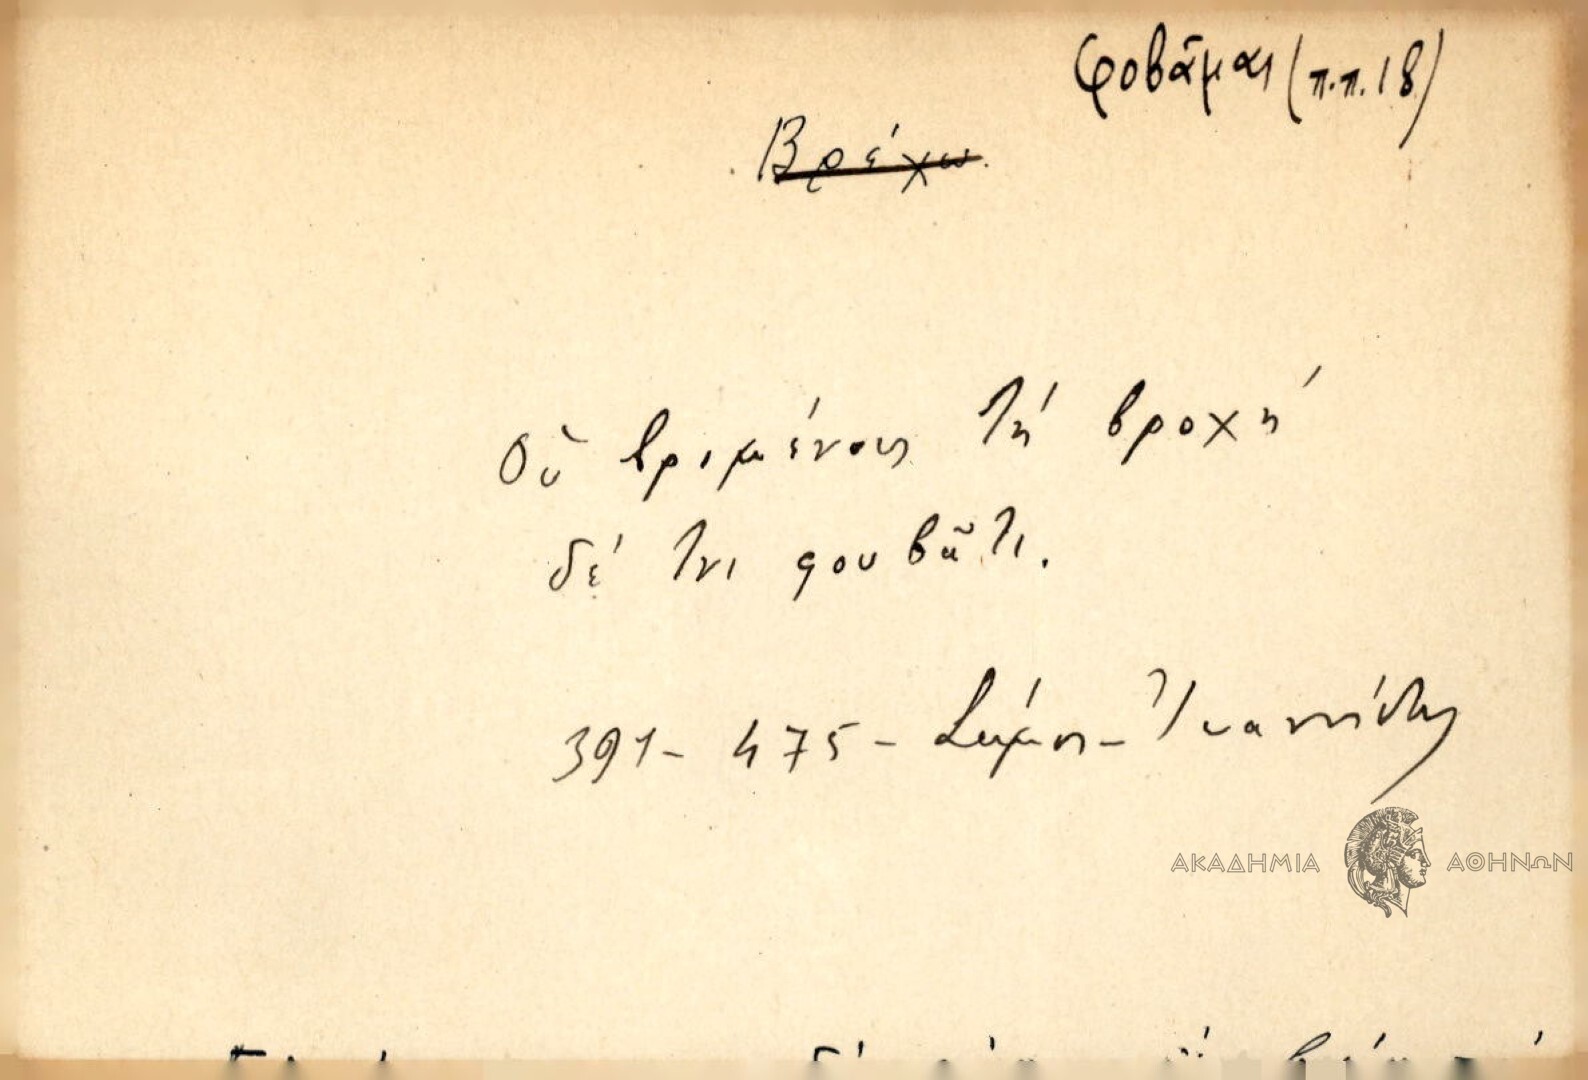 φοβᾶμαι (π.π. 18)
Βρέχω.
Οὑ βριμένους τή βροχή
δέ τνι φουβᾶτι.
391 - 475 - Σάμος - Ἰωαννίδης
ΑΚΑΔΗΜΙΑ ΑΘΗΝΩΝ